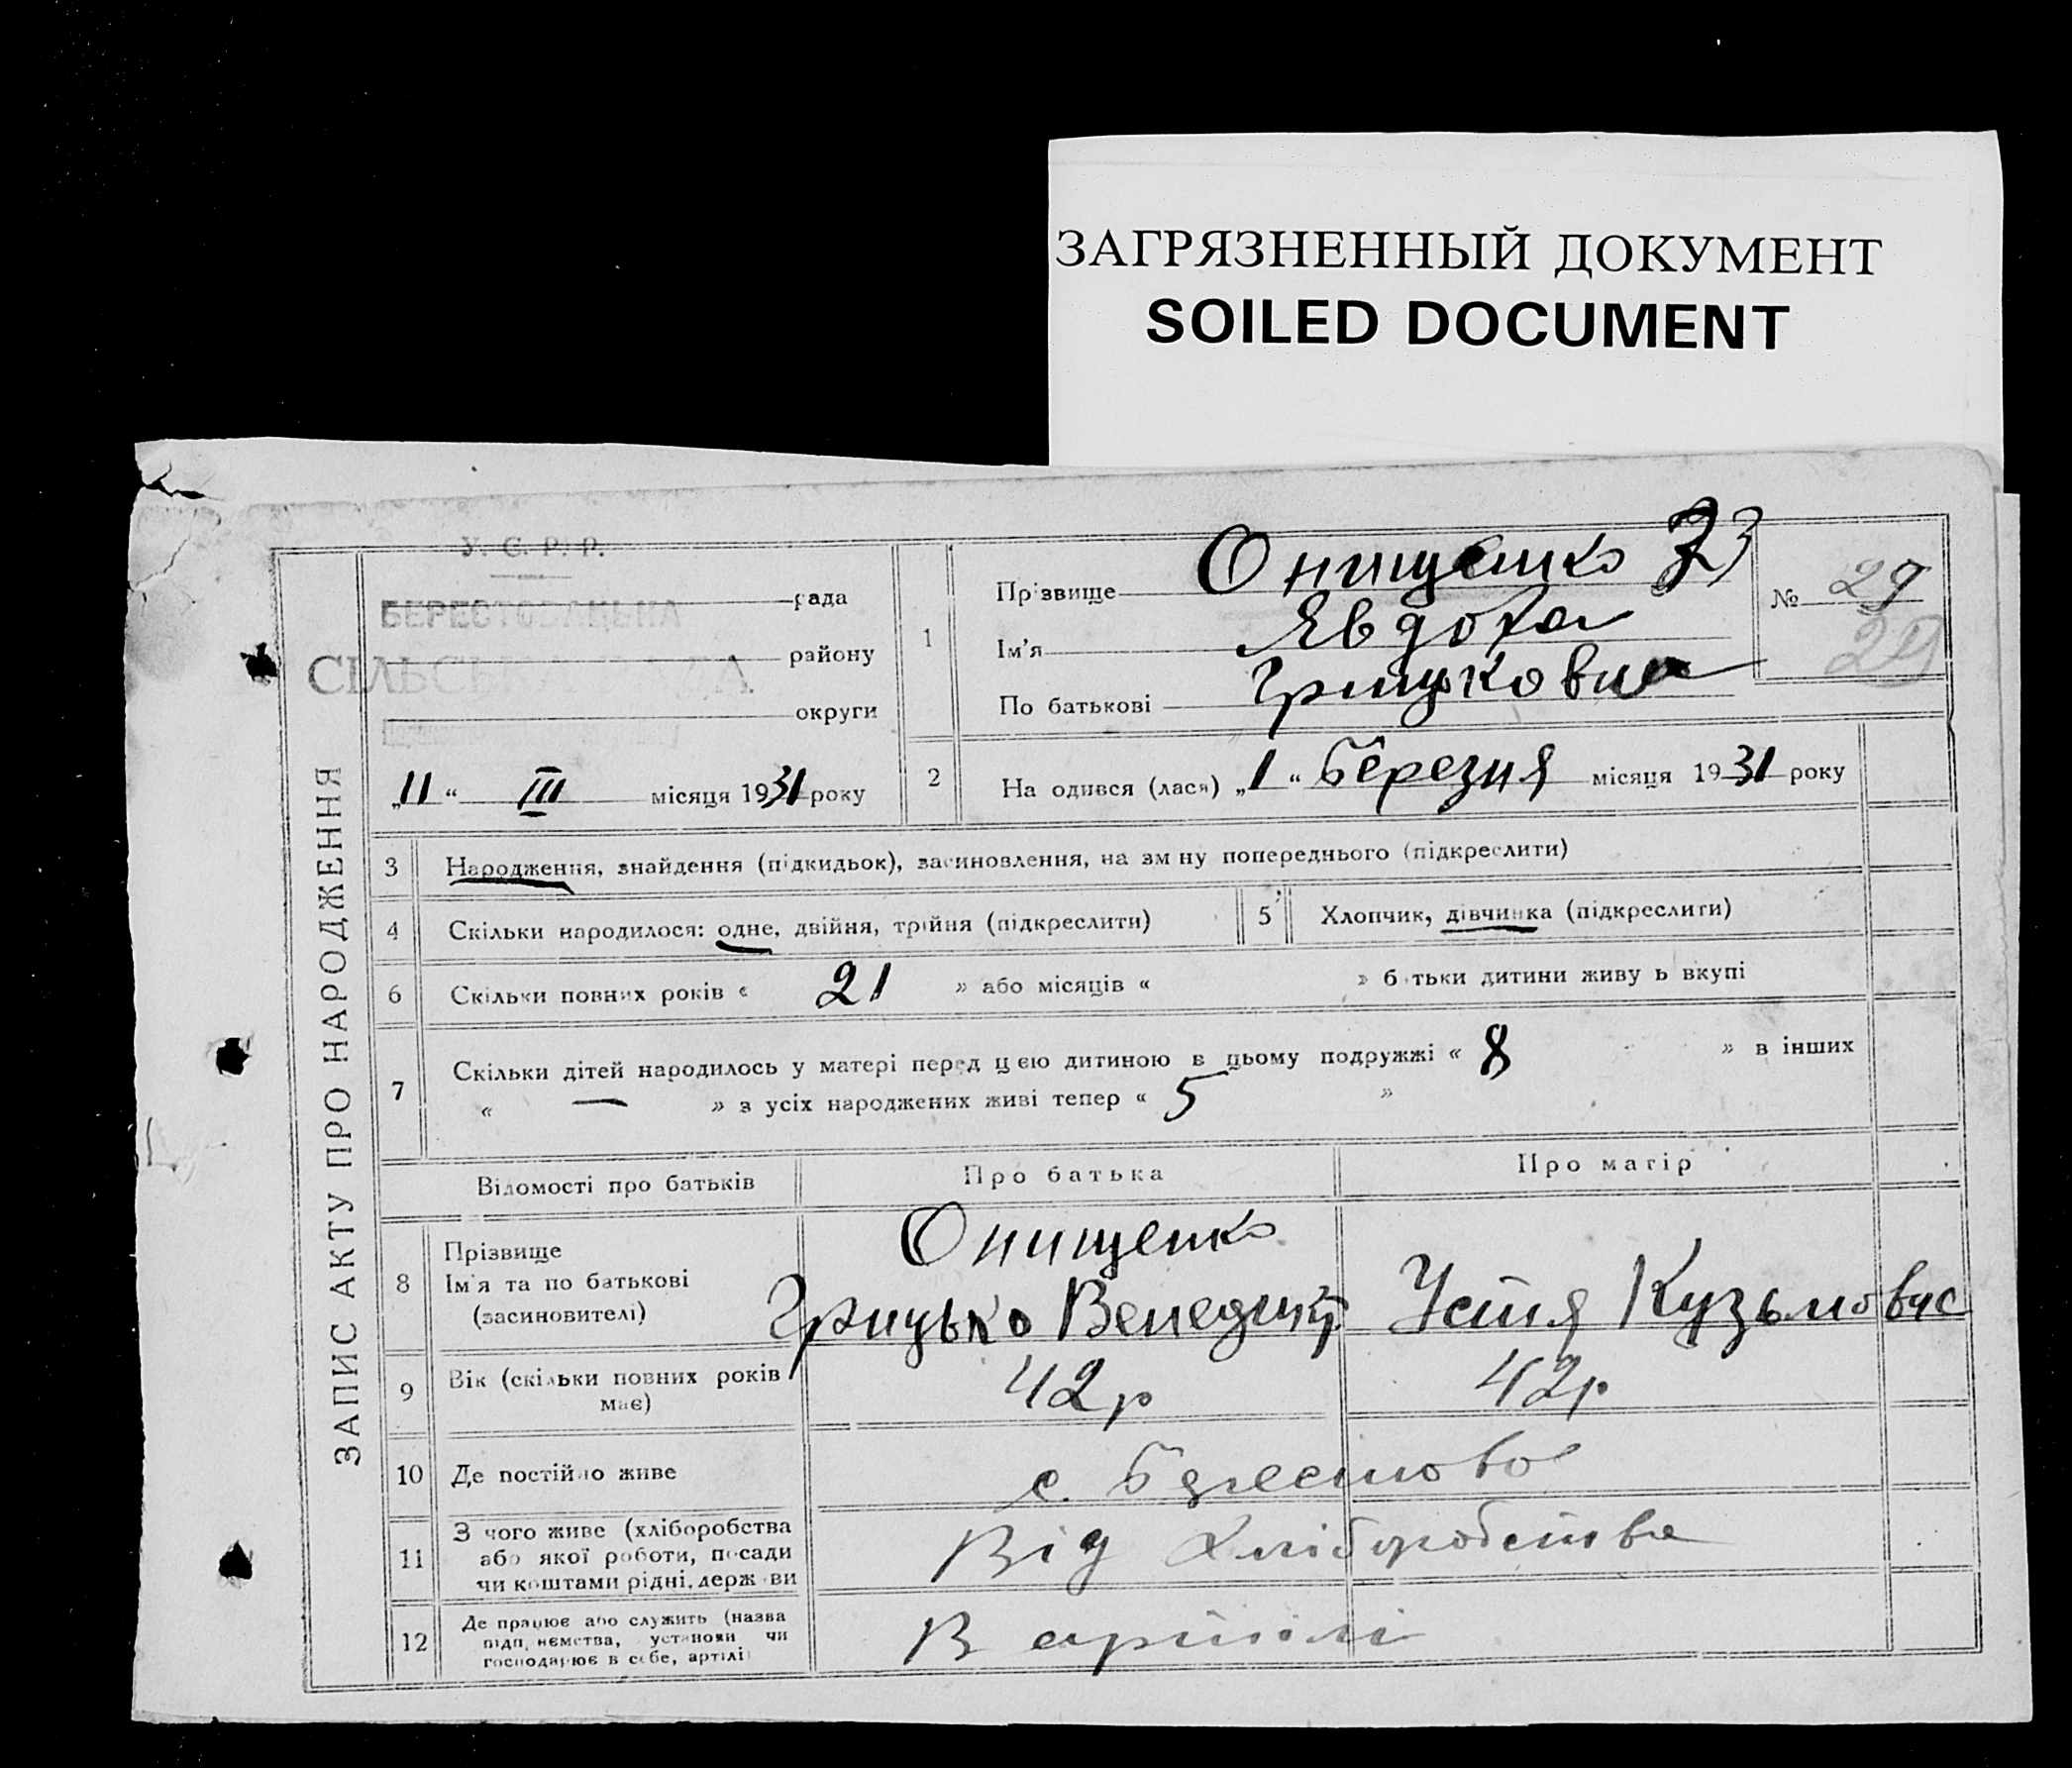 ЗАГРЯЗНЕННЫЙ ДОКУМЕНТ
SOILED DOCUMENT
ЗАПИС АКТУ ПРО НАРОДЖЕННЯ
У. С. Р. Р.
БЕРЕСТОВАЦЬКА рада
СІЛЬСЬКА РАДА
району
округи
„11“ III місяця 1931 року
1
Прізвище Онищенко 23
Ім'я Явдоха
По батькові Грицьковна
№ 29
29
2
На одився (лася) „1“ березня місяця 1931 року
3 Народження, знайдення (підкидьок), засиновлення, на зм ну попереднього (підкреслити)
4 Скільки народилося: одне, двійня, трійня (підкреслити) 5 Хлопчик, дівчинка (підкреслити)
6 Скільки повних років « 21 » або місяців « » б тьки дитини живу ь вкупі
7 Скільки дітей народилось у матері перед цією дитиною в цьому подружжі « 8 » в інших
« — » з усіх народжених живі тепер « 5 »
Відомості про батьків Про батька Про матір
8 Прізвище
Ім'я та по батькові
(засиновителі)
Онищенко
Грицько Венедикт Устя Кузьмовна
9 Вік (скільки повних років має) 42 р 42 р
10 Де постійно живе с. Берестове
11 З чого живе (хліборобства
або якої роботи, посади
чи коштами рідні, держ ви
Від хліборобства
12 Де працює або служить (назва
підп, немства, установи чи
господарює в себе, артілі)
В артілі